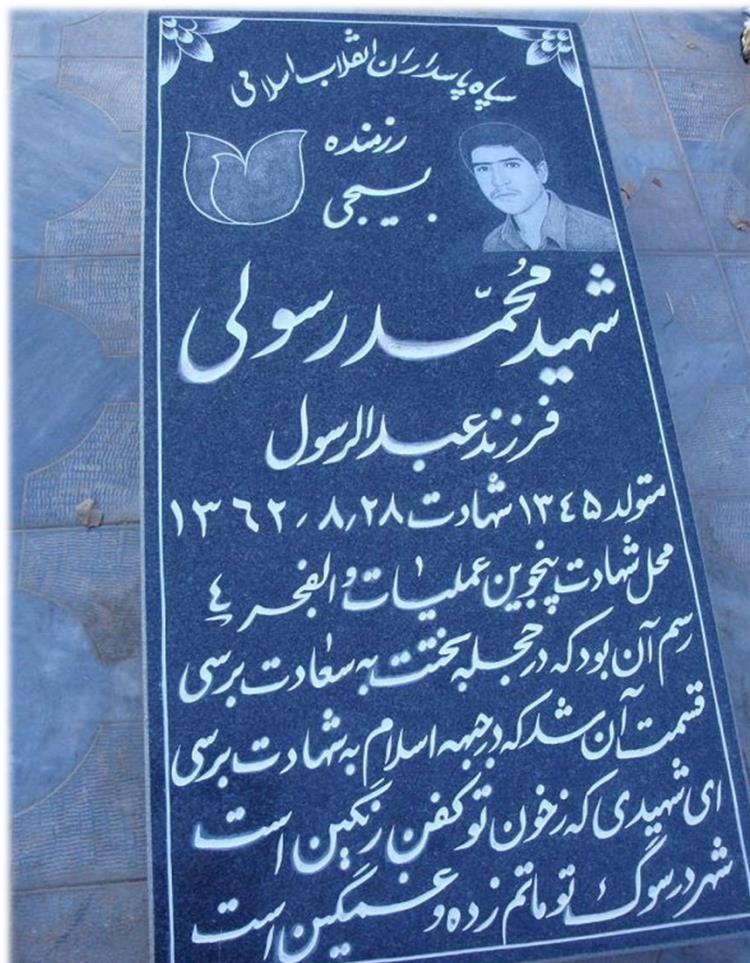 سپاه پاسداران انقلاب اسلامی
رزمنده
بسیجی
شهید مُحمّد رسولی
فرزند عبدالرسول
متولد ۱۳٤۵ شهادت ۱۳٦۲٫۸٫۲۸
محل شهادت پنجوین عملیات والفجر ٤
رسم آن بود که در حجله بختت به سعادت برسی
قسمت آن شد که در جبهه اسلام به شهادت برسی
ای شهیدی که ز خون تو کفن رنگین است
شهر در سوگ تو ماتم زده و غمگین است